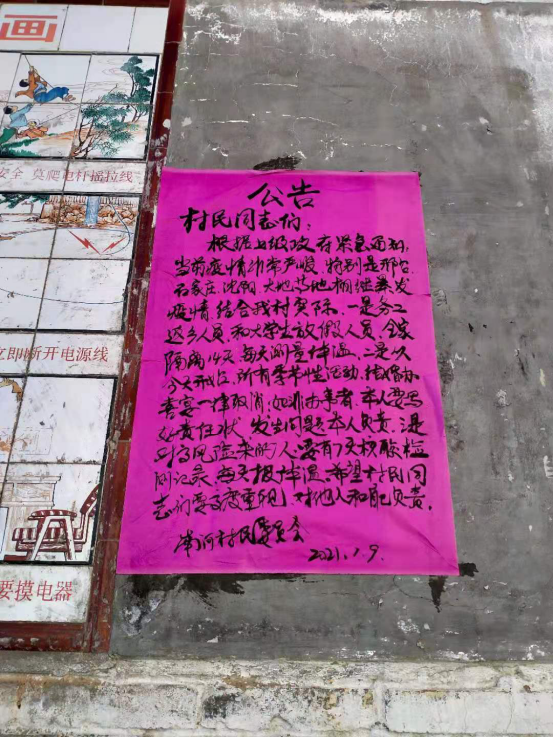 画
安全 莫爬电杆摇拉线
立即断开电源线
要摸电器
公告
村民同志们:
根据上级政府紧急通知,
当前疫情非常严峻,特别是邢台.
石家庄.沈阳.大连等地相继暴发
疫情.结合我村实际.一是务工
返乡人员.和大学生放假人员.全家
隔离.每天测量体温.二是从
今天开始.所有季节性活动.结婚办
喜宴一律取消;如非办事者.本人要写
好责任状.发生问题本人负责.三是
风险来的人.要有7天核酸检
测记录.每天报体温.希望村民同
志们要高度重视.对他人和自己负责.
村民委员会
2021.1.9.